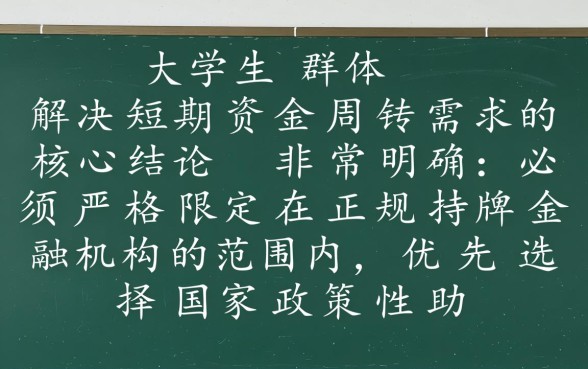 大学生 群体
解决短期资金周转需求的
核心结论 非常明确：必
须严格限定在正规持牌金
融机构的范围内，优先选
择国家政策性助